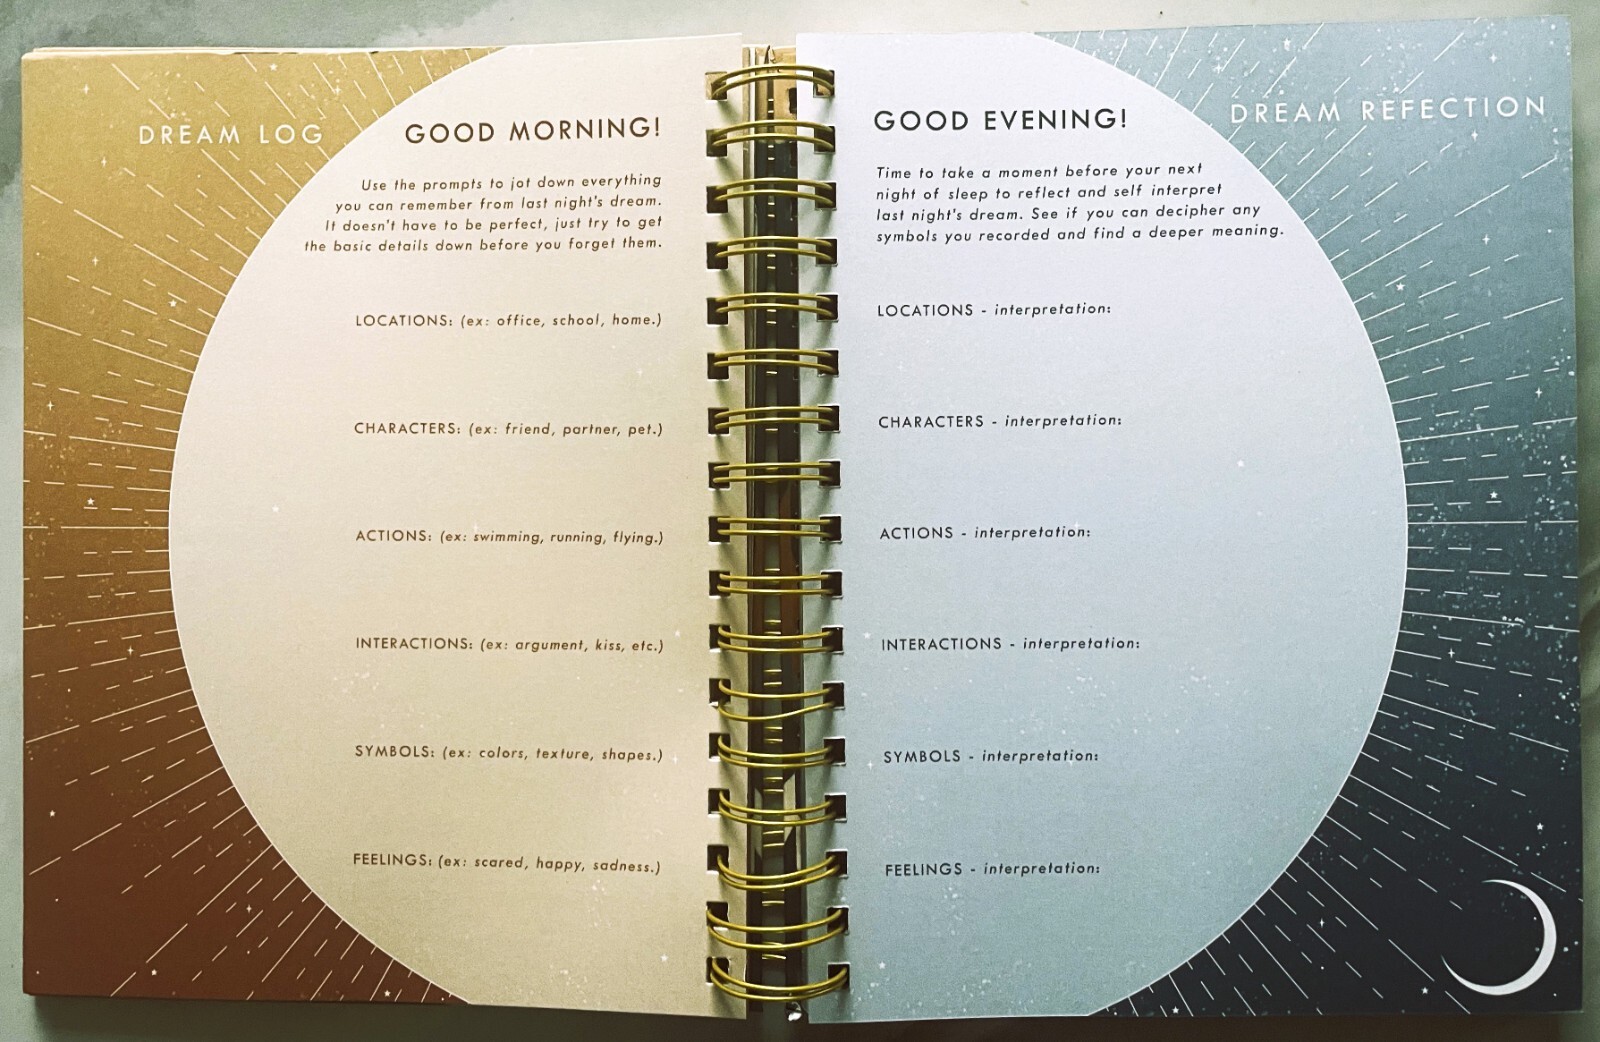 DREAM LOG
GOOD MORNING!
Use the prompts to jot down everything
you can remember from last night's dream.
It doesn't have to be perfect, just try to get
the basic details down before you forget them.
LOCATIONS: (ex: office, school, home.)
CHARACTERS: (ex: friend, partner, pet.)
ACTIONS: (ex: swimming, running, flying.)
INTERACTIONS: (ex: argument, kiss, etc.)
SYMBOLS: (ex: colors, texture, shapes.)
FEELINGS: (ex: scared, happy, sadness.)
GOOD EVENING!
DREAM REFECTION
Time to take a moment before your next
night of sleep to reflect and self interpret
last night's dream. See if you can decipher any
symbols you recorded and find a deeper meaning.
LOCATIONS - interpretation:
CHARACTERS - interpretation:
ACTIONS - interpretation:
INTERACTIONS - interpretation:
SYMBOLS - interpretation:
FEELINGS - interpretation: